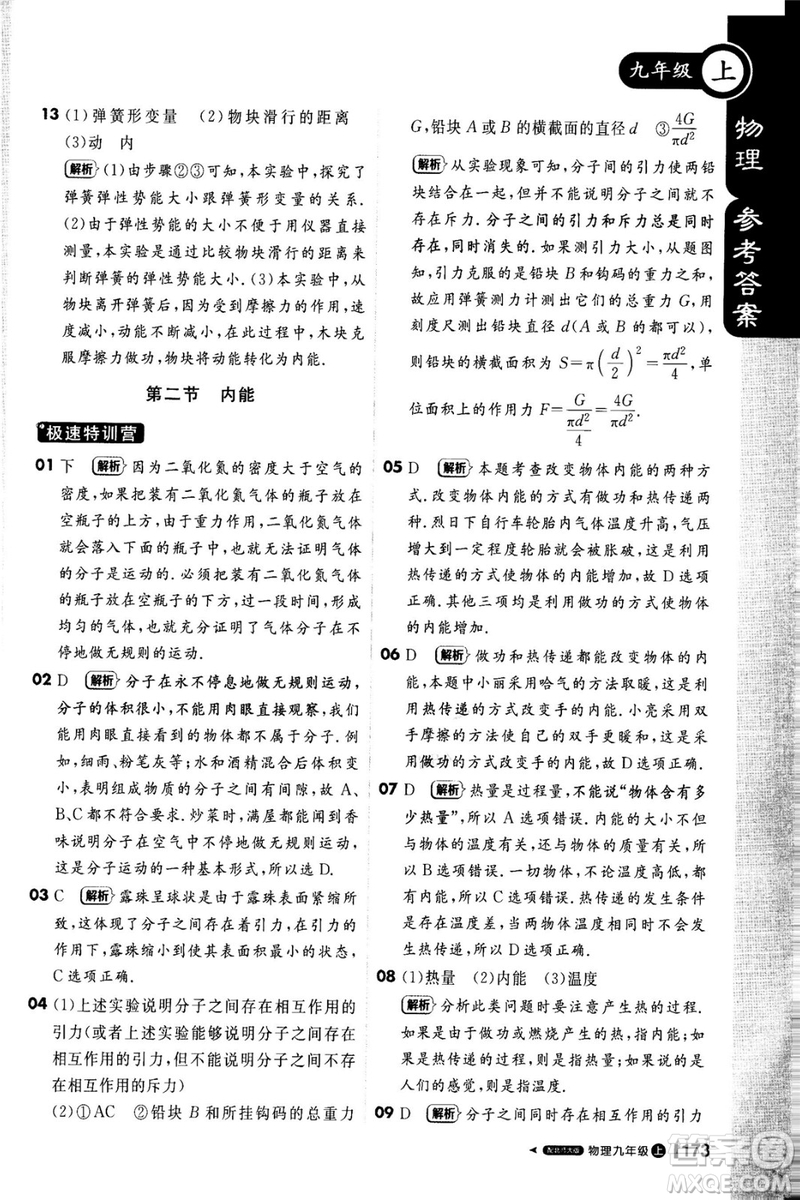 九年级 上
物理 参考答案
13 (1)弹簧形变量 (2)物块滑行的距离
(3)动 内
解析 (1)由步骤②③可知,本实验中,探究了
弹簧弹性势能大小跟弹簧形变量的关系.
(2)由于弹性势能的大小不便于用仪器直接
测量,本实验是通过比较物块滑行的距离来
判断弹簧的弹性势能大小.(3)本实验中,从
物块离开弹簧后,由于受到摩擦力的作用,速
度减小,动能不断减小,在此过程中,木块克
服摩擦力做功,物块动能转化为内能.
第二节 内能
极速特训营
01 下 解析 因为二氧化氮的密度大于空气的
密度,如果把装有二氧化氮气体的瓶子放在
空瓶子的上方,由于重力作用,二氧化氮气体
就会落入下面的瓶子中,也就无法证明气体
的分子是运动的.必须把装有二氧化氮气体
的瓶子放在空瓶子的下方,过一段时间,形成
均匀的气体,也就充分证明了气体分子在不
停地做无规则的运动.
02 D 解析 分子在永不停息地做无规则运动,
分子的体积很小,不能用肉眼直接观察,我们
用肉眼直接看到的物体都不是单个的分子.
如,细雨、粉笔灰等;水和酒精混合后总体积
变小,表明组成物质的分子间有间隙,故 A、
B、C 都是错误的.炒菜时,满屋都能闻到的香
味说明分子在空气中不停地做无规则运动,
这是扩散运动的一种基本形式,所以选 D.
03 C 解析 露珠呈球状是由于露珠表面紧缩所
致,这反映了分子之间存在着引力,在引力的
作用下,露珠缩小到表面积最小的状态,
C 选项正确.
04 (1)上述实验说明分子之间存在相互作用的
引力(或者上述实验能够说明分子之间存在
相互作用的引力,但不能说明分子之间不存
在相互作用的斥力)
(2)①AC ②铅块 B 和所挂钩码的总重力
G,铅块 A 或 B 的横截面的直径 d ③4G/πd²
解析 从实验现象可知,分子间的引力使两铅
块结合在一起,但并不能说明分子之间没有
存在斥力.分子之间的引力和斥力总是同时
存在,同时消失的.如果测引力大小,从题图
知,引力克服的是铅块 B 和钩码的重力之和,
故应用弹簧测力计测出它们的总重力 G,用
刻度尺测出铅块直径 d(A 或 B 的都可以),
则铅块的横截面积 S=π(d/2)²=πd²/4,单
位面积上的作用力 F=G/(πd²/4)=4G/πd².
05 D 解析 本题考查改变物体内能的两种方
式.改变物体内能的方式有做功和热传递两
种.烈日下自行车轮胎内气体温度升高,气压
增大到一定程度轮胎就会被胀破,这是利用
热传递的方式使物体的内能增加,故 D 选项
正确.其他三项均是利用做功的方式使物体
的内能增加.
06 D 解析 做功和热传递都能改变物体的内
能,本题中小丽采用哈气的方法取暖,这是利
用热传递的方式改变手的内能.小亮采用双
手摩擦的方法使自己的双手更暖和,这是利
用做功的方式改变手的内能,故选 D.
07 D 解析 热量是过程量,不能说“物体含有多
少热量”,所以 A 选项错误.内能的大小不但
与物体的温度有关,还和物体的质量有关,所
以 B 选项错误.一切物体,不论温度高低都具
有内能,所以 C 选项错误.热传递的发生条件
是存在温度差,当两物体的温度相同时,就不
会发生热传递,所以 D 选项正确.
08 (1)热量 (2)内能 (3)温度
解析 分析此类问题时要注意产生热的过程.
如果是由于做功或燃烧产生的热,指内能;如
果是热传递的过程,则是指热量;如果是对
人们的感觉,则是指温度.
09 D 解析 分子之间同时存在相互作用的引力
配北师大版 物理九年级 上 173
答案圈
MXQE.COM